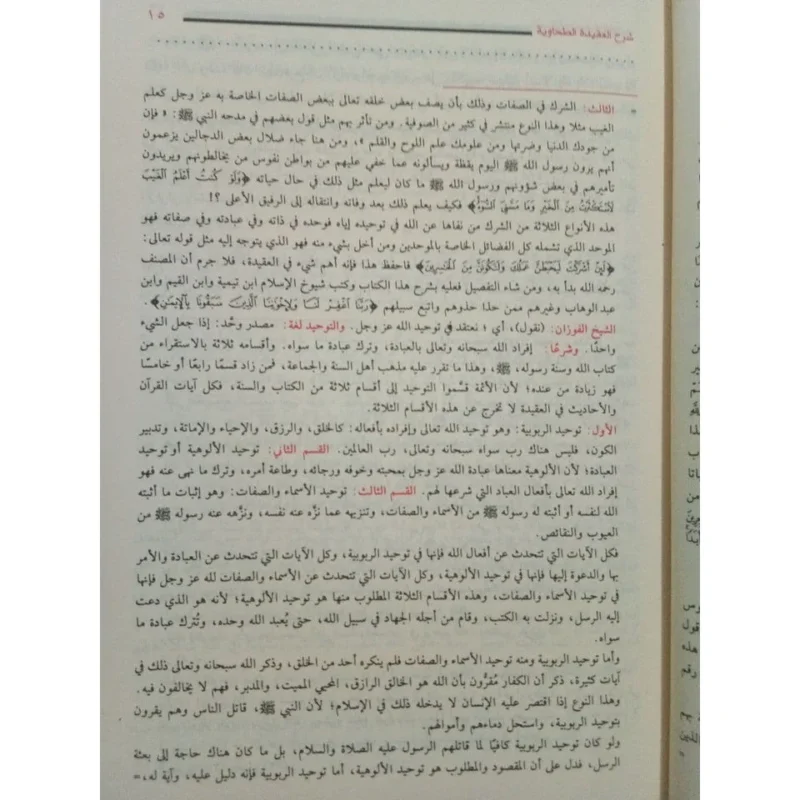 شرح العقيدة الطحاوية ١٥
= الثالث: الشرك في الصفات وذلك بأن يصف بعض خلقه تعالى ببعض الصفات الخاصة به عز وجل كعلم
الغيب مثلا وهذا النوع منتشر في كثير من الصوفية. ومن تأثر بهم مثل قول بعضهم في مدحه النبي ﷺ: « فإن
من جودك الدنيا وضرتها ومن علومك علم اللوح والقلم »، ومن هنا جاء ضلال بعض الدجالين يزعمون
أنهم يرون رسول الله ﷺ اليوم يقظة ويسألونه عما خفي عليهم من بواطن نفوس من يخالطونهم ويريدون
تأميرهم في بعض شؤونهم ورسول الله ﷺ ما كان ليعلم مثل ذلك في حال حياته ﴿وَلَوْ كُنتُ أَعْلَمُ الْغَيْبَ
لَاسْتَكْثَرْتُ مِنَ الْخَيْرِ وَمَا مَسَّنِيَ السُّوءُ﴾ فكيف يعلم ذلك بعد وفاته وانتقاله إلى الرفيق الأعلى ؟!
هذه الأنواع الثلاثة من الشرك من نفاها عن الله في توحيده إياه فوحده في ذاته وفي عبادته وفي صفاته فهو
الموحد الذي تشمله كل الفضائل الخاصة بالموحدين ومن أخل بشيء منه فهو الذي يتوجه إليه مثل قوله تعالى:
﴿لَئِنْ أَشْرَكْتَ لَيَحْبَطَنَّ عَمَلُكَ وَلَتَكُونَنَّ مِنَ الْخَاسِرِينَ﴾ فاحفظ هذا فإنه أهم شيء في العقيدة، فلا جرم أن المصنف
رحمه الله بدأ به، ومن شاء التفصيل فعليه بشرح هذا الكتاب وكتب شيوخ الإسلام ابن تيمية وابن القيم وابن
عبد الوهاب وغيرهم ممن حذا حذوهم واتبع سبيلهم ﴿رَبَّنَا اغْفِرْ لَنَا وَلِإِخْوَانِنَا الَّذِينَ سَبَقُونَا بِالْإِيمَانِ﴾.
الشيخ الفوزان: (نقول)، أي : نعتقد في توحيد الله عز وجل. والتوحيد لغة: مصدر وحَّد: إذا جعل الشيء
واحدًا. وشرعًا: إفراد الله سبحانه وتعالى بالعبادة، وترك عبادة ما سواه. وأقسامه ثلاثة بالاستقراء من
كتاب الله وسنة رسوله، ﷺ، وهذا ما تقرر عليه مذهب أهل السنة والجماعة، فمن زاد قسمًا رابعًا أو خامسًا
فهو زيادة من عنده؛ لأن الأئمة قسَّموا التوحيد إلى أقسام ثلاثة من الكتاب والسنة، فكل آيات القرآن
والأحاديث في العقيدة لا تخرج عن هذه الأقسام الثلاثة.
الأول: توحيد الربوبية: وهو توحيد الله تعالى وإفراده بأفعاله: كالخلق، والرزق، والإحياء والإماتة، وتدبير
الكون، فليس هناك رب سواه سبحانه وتعالى، رب العالمين. القسم الثاني: توحيد الألوهية أو توحيد
العبادة؛ لأن الألوهية معناها عبادة الله عز وجل بمحبته وخوفه ورجائه، وطاعة أمره، وترك ما نهى عنه فهو
إفراد الله تعالى بأفعال العباد التي شرعها لهم. القسم الثالث: توحيد الأسماء والصفات: وهو إثبات ما أثبته
الله لنفسه أو أثبته له رسوله ﷺ من الأسماء والصفات، وتنزيهه عما نزَّه عنه نفسه، ونزَّهه عنه رسوله ﷺ من
العيوب والنقائص.
فكل الآيات التي تتحدث عن أفعال الله فإنها في توحيد الربوبية، وكل الآيات التي تتحدث عن العبادة والأمر
بها والدعوة إليها فإنها في توحيد الألوهية، وكل الآيات التي تتحدث عن الأسماء والصفات لله عز وجل فإنها
في توحيد الأسماء والصفات، وهذه الأقسام الثلاثة المطلوب منها هو توحيد الألوهية؛ لأنه هو الذي دعت
إليه الرسل، ونزلت به الكتب، وقام من أجله الجهاد في سبيل الله، حتى يُعبد الله وحده، وتُترك عبادة ما
سواه.
وأما توحيد الربوبية ومنه توحيد الأسماء والصفات فلم ينكره أحد من الخلق، وذكر الله سبحانه وتعالى ذلك في
آيات كثيرة، ذكر أن الكفار مُقرُّون بأن الله هو الخالق الرازق، المحيي المميت، والمدبر، فهم لا يخالفون فيه.
وهذا النوع إذا اقتصر عليه الإنسان لا يدخله ذلك في الإسلام؛ لأن النبي ﷺ، قاتل الناس وهم يقرون
بتوحيد الربوبية، واستحل دماءهم وأموالهم.
ولو كان توحيد الربوبية كافيًا لما قاتلهم الرسول عليه الصلاة والسلام، بل ما كان هناك حاجة إلى بعثة
الرسل، فدل على أن المقصود والمطلوب هو توحيد الألوهية، أما توحيد الربوبية فإنه دليل عليه، وآية له،=